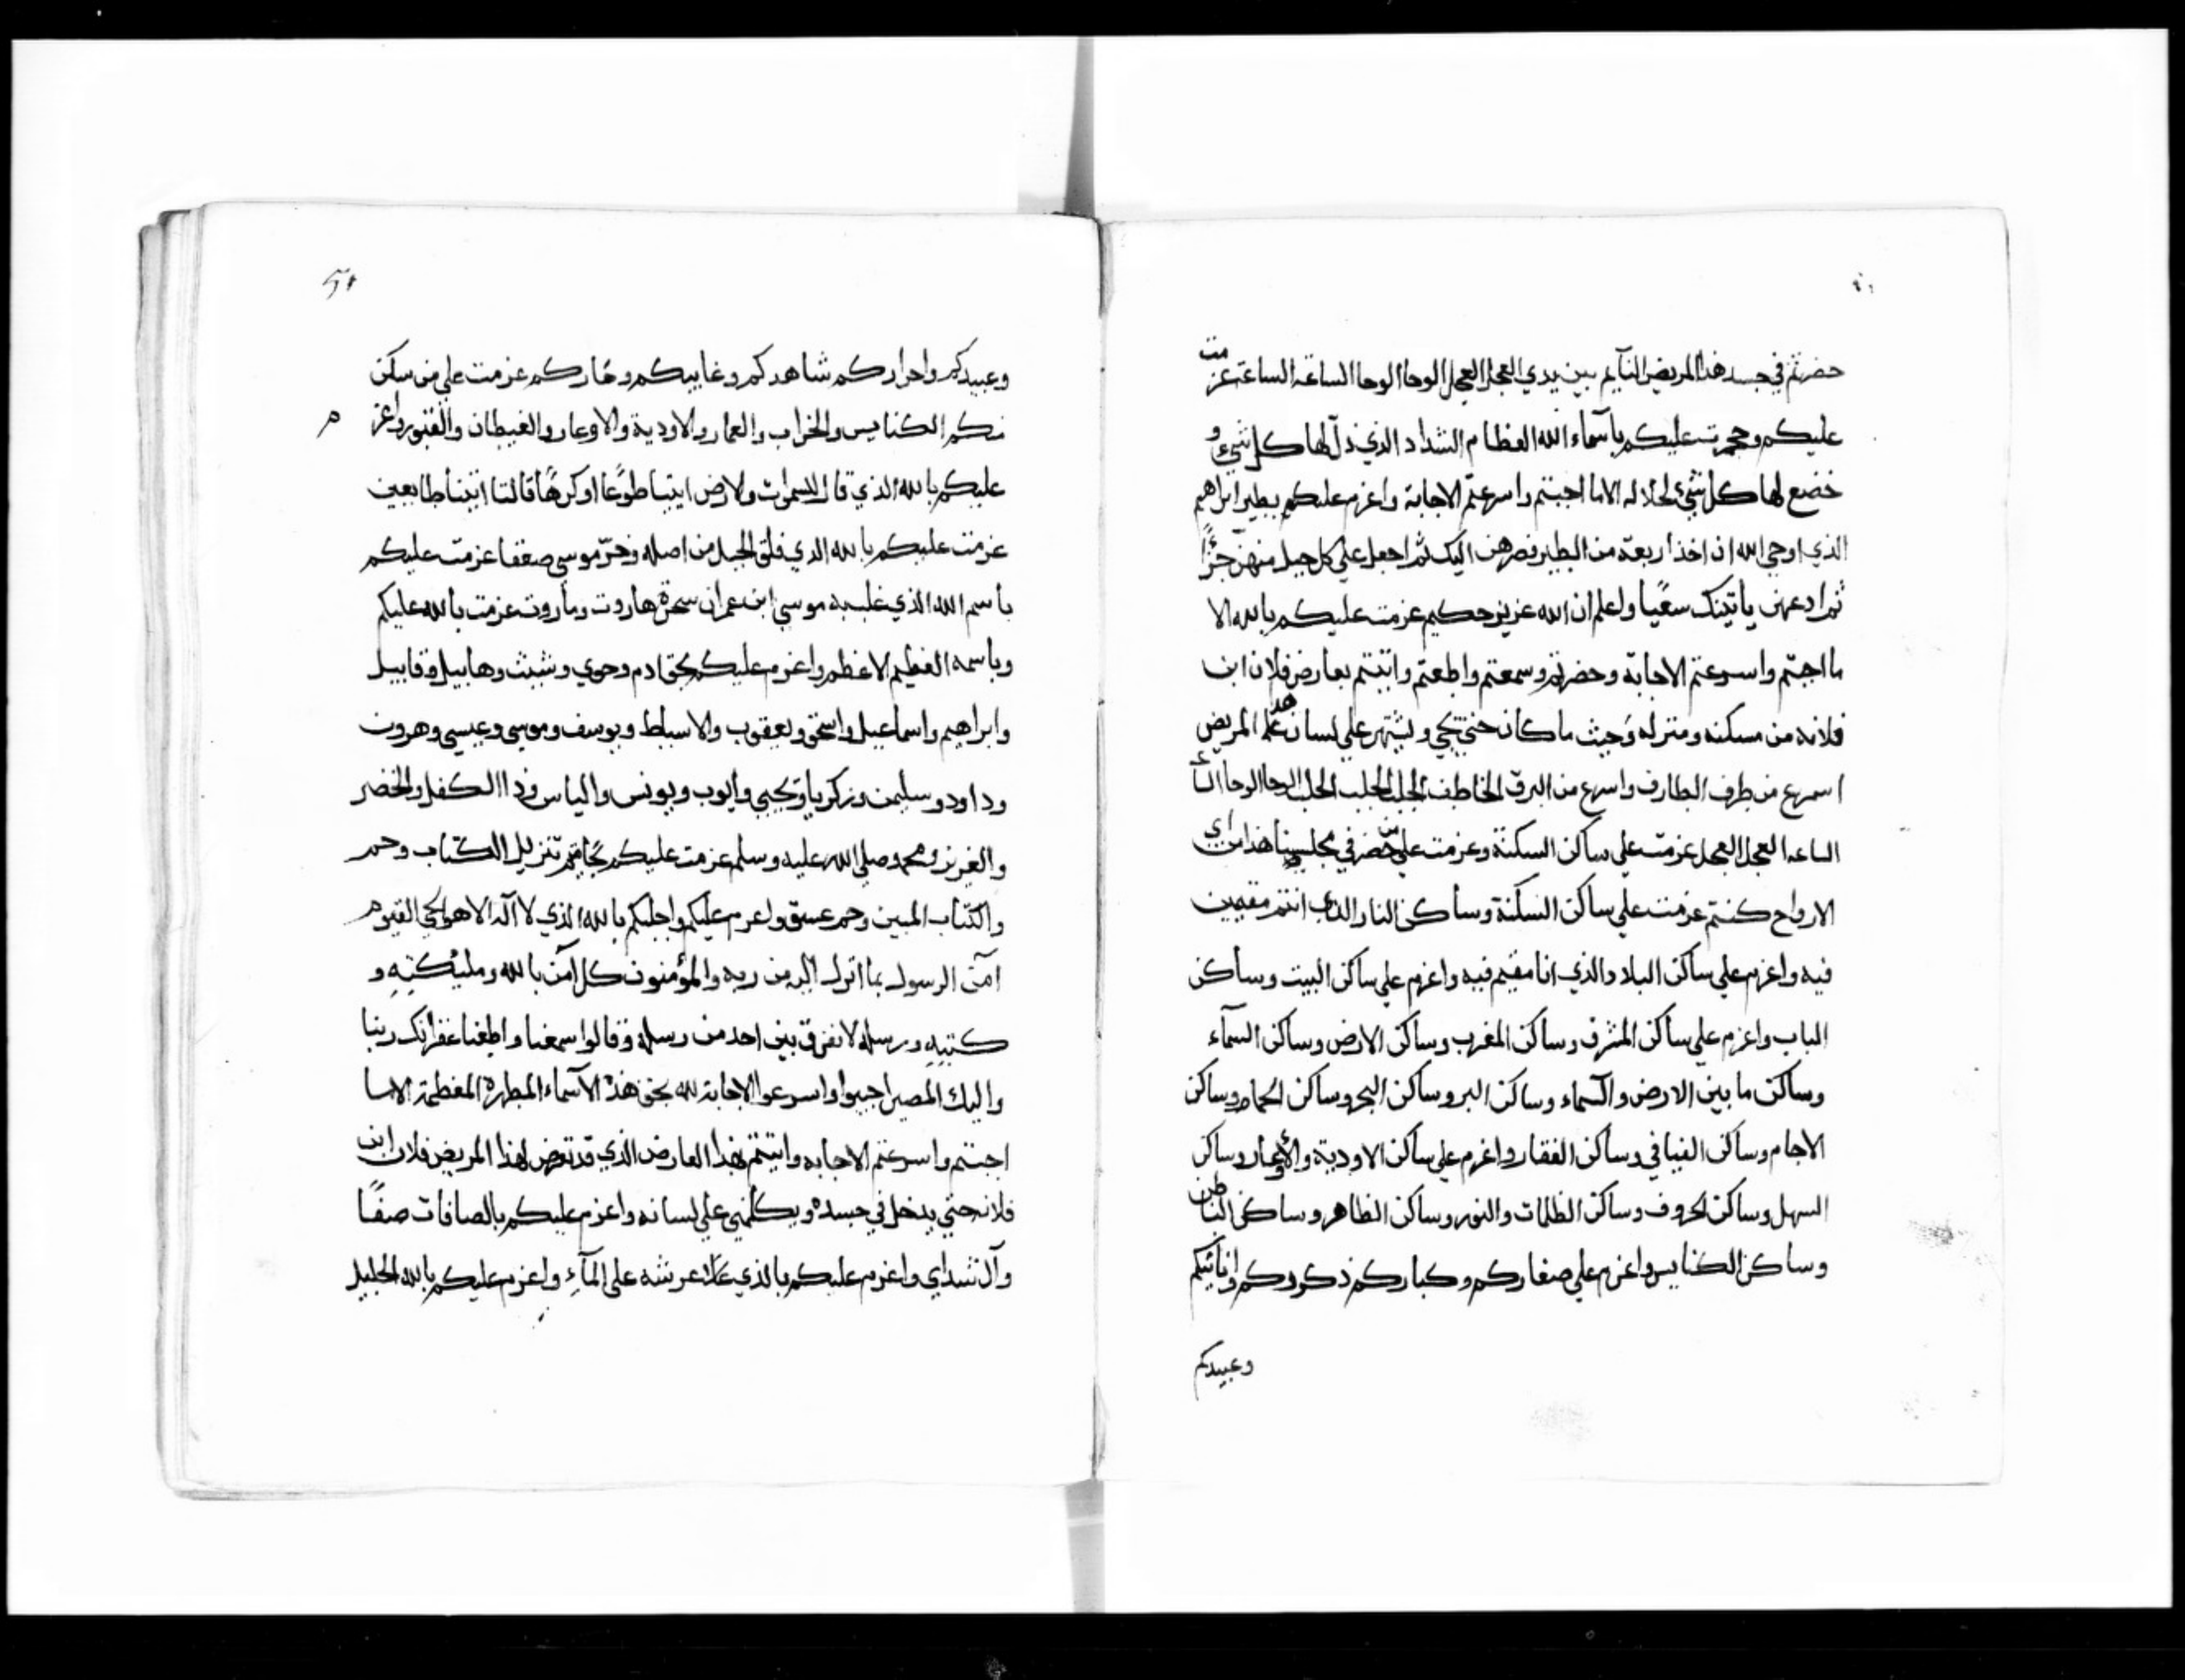 حضرتم في جسد هذا المريض النآيم بين يدي العجل العجل الوحا الوحا الساعة الساعة عزمت
عليكم وحجرت عليكم باسمآء الله العظام الشداد الذي ذل لها كل شيء و
خضع لها كل شيء لجلاله الا ما اجبتم واسرعتم الاجابة واعزم عليكم بطير ابراهيم
الذي اوحي الله ان اخذ اربعة من الطير فصرهن اليك ثم اجعل علي كل جبل منهن جزًا
ثم ادعهن ياتينك سعيًا واعلم ان الله عزيز حكيم عزمت عليكم بالله الا
ما اجبتم واسرعتم الاجابة وحضرتم وسمعتم واطعتم واتيتم بعارض فلان ابن
فلانه من مسكنه ومنزله وحيث ما كان حتي يجي ويشتهر علي لسان هذا المريض
اسرع من طرف الطارف واسرع من البرق الخاطف الجلب الجلب الجلب الوحا الوحا الساعة
الساعه العجل العجل عزمت علي ساكن السكنة وعزمت علي من حضر في مجلسنا هذا من اي
الارواح كنتم عزمت علي ساكن السكنة وساكن النار الذي انتم مقيمين
فيه واعزم علي ساكن البلاد والذي انا مقيم فيه واعزم علي ساكن البيت وساكن
الباب واعزم علي ساكن المشرق وساكن المغرب وساكن الارض وساكن السمآء
وساكن ما بين الارض والسمآء وساكن البر وساكن البحر وساكن الحمام وساكن
الاجام وساكن الفيافي وساكن القفار واعزم علي ساكن الاودية والاوعار وساكن
السهل وساكن الجروف وساكن الظلمات والنور وساكن الظاهر وساكن الباطن
وساكن الكنايس واعزم علي صغاركم وكباركم ذكوركم واناثيكم
وعبيدكم
وعبيدكم واحراركم شاهدكم وغايبكم وعماركم عزمت علي من سكن
منكم الكنايس والخراب والعمار والاودية والاوعار والغيطان والقبور واعزم
عليكم بالله الذي قال للسموات والارض ايتيا طوعًا او كرهًا قالتا اتينا طايعين
عزمت عليكم بالله الذي فلق الجبل من اصله وخر موسي صعقا عزمت عليكم
باسم الله الذي غلب به موسي ابن عمران سحرة هاروت وماروت عزمت بالله عليكم
وباسمه العظيم الاعظم واعزم عليكم بحق ادم وحوي وشيث وهابيل وقابيل
وابراهيم واسماعيل واسحق ويعقوب والاسباط ويوسف وموسي وعيسي وهرون
وداود وسليمن وزكريا ويحيي وايوب ويونس والياس وذا الكفل والخضر
والعزيز ومحمد صلي الله عليه وسلم عزمت عليكم بحاميم تنزيل الكتاب وحم
والكتاب المبين وحم عسق واعزم عليكم واجلبكم بالله الذي لا اله الا هو الحي القيوم
امن الرسول بما انزل اليه من ربه والمؤمنون كل آمن بالله ومليكته و
كتبه ورسله لا نفرق بين احد من رسله وقالوا سمعنا واطعنا غفرانك ربنا
واليك المصير اجيبوا واسرعوا الاجابة لله بحق هذه الاسمآء المطهرة المعظمة الا ما
اجبتم واسرعتم الاجابه واتيتم بهذا العارض الذي قد تعرض لهذا المريض فلان ابن
فلانه حتي يدخل في جسده ويكلمني علي لسانه واعزم عليكم بالصافات صفًا
وآل شداي واعزم عليكم بالذي علا عرشه علي المآء واعزم عليكم بالله الجليل